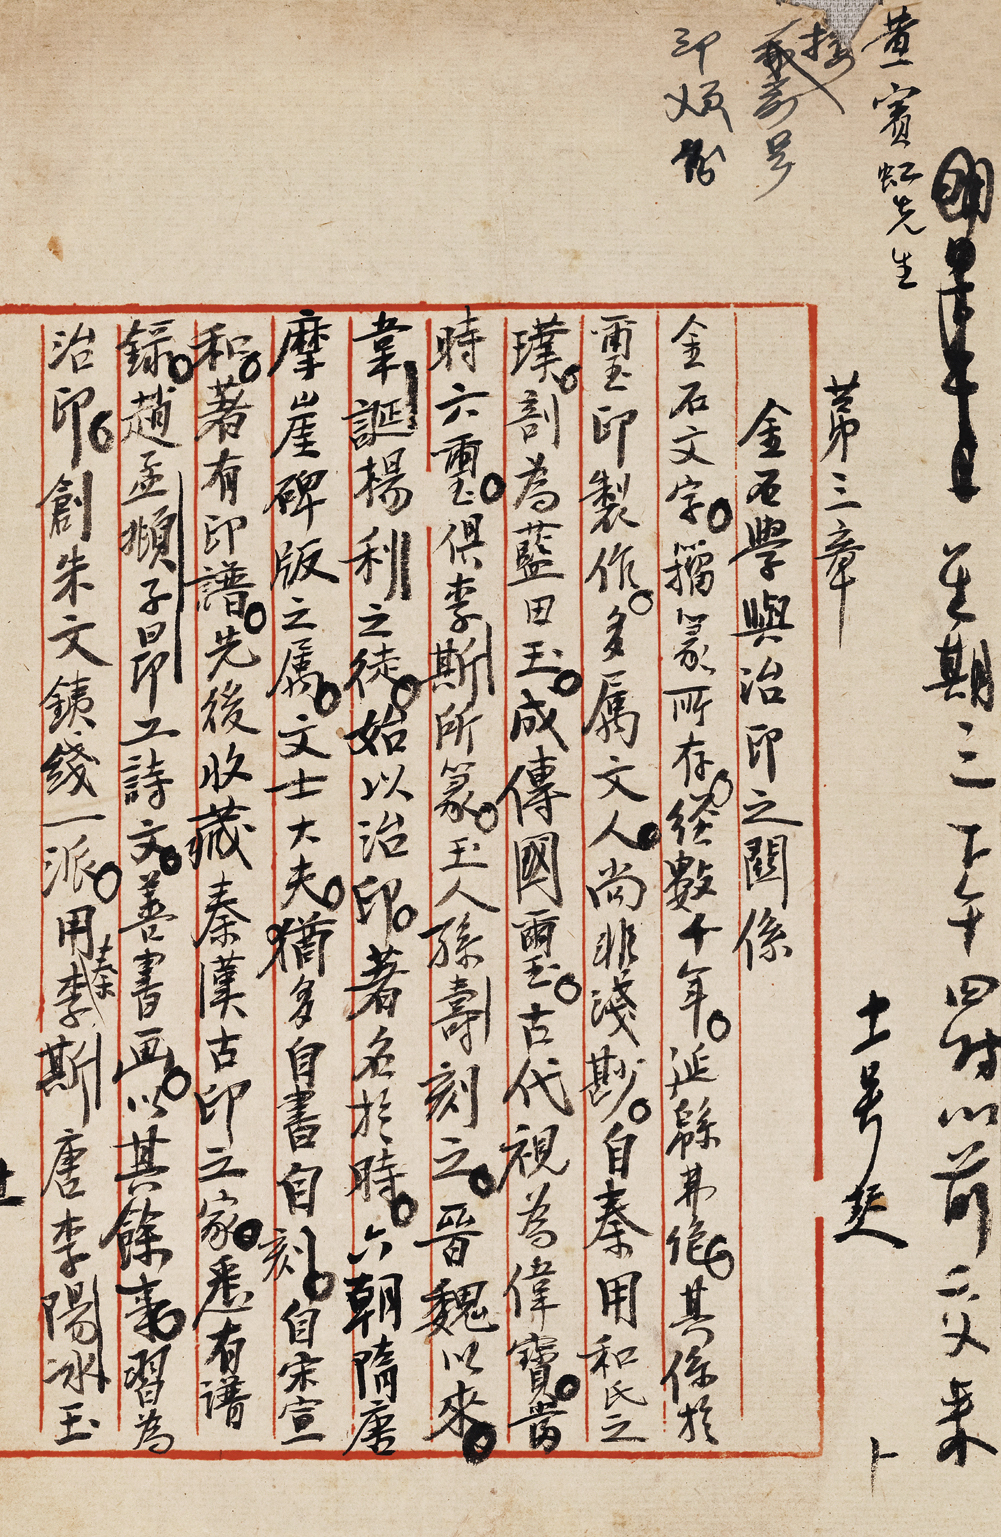 星期三下午四时以前示义来
黄宾虹先生
土号
第三章
金石學與治印之関係
金石文字。籀篆所存。経數十年。延緜弗絶。其係於
璽印製作。多属文人。尚非淺尠。自秦用和氏之
璞。剖為藍田玉。成傳國璽。古代視為偉寶。當
時六璽。俱李斯所篆。玉人孫壽刻之。晋魏以來。
韋誕楊利之徒。始以治印。著名於時。六朝隋唐
摩崖碑版之属。文士大夫。猶多自書自刻。自宋宣
和。著有印譜。先後收藏秦漢古印之家。悉有谱
録。趙孟頫子昂工詩文。善書画。以其餘事。習為
治印。創朱文鉄綫一派。用秦李斯唐李陽冰玉